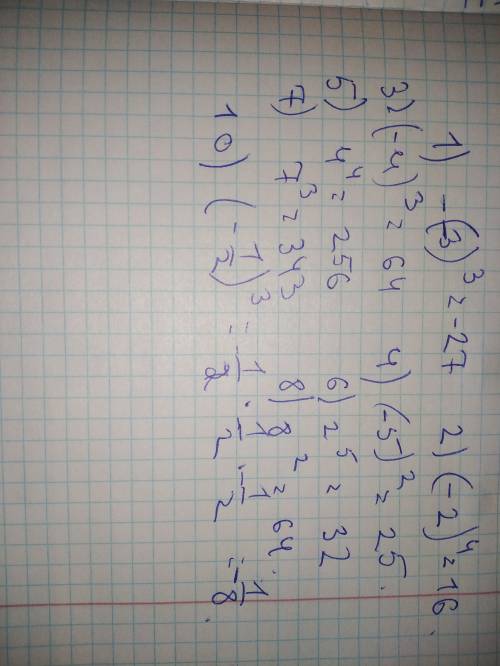 1) -(3)³ = -27 2) (-2)⁴ = 16.
3) (-4)³ = 64 4) (-5)² = 25.
5) 4⁴ = 256 6) 2⁵ = 32
7) 7³ = 343 8) 8² = 64.
10) (-1/2)³ = -1/2 · -1/2 · -1/2 = -1/8.